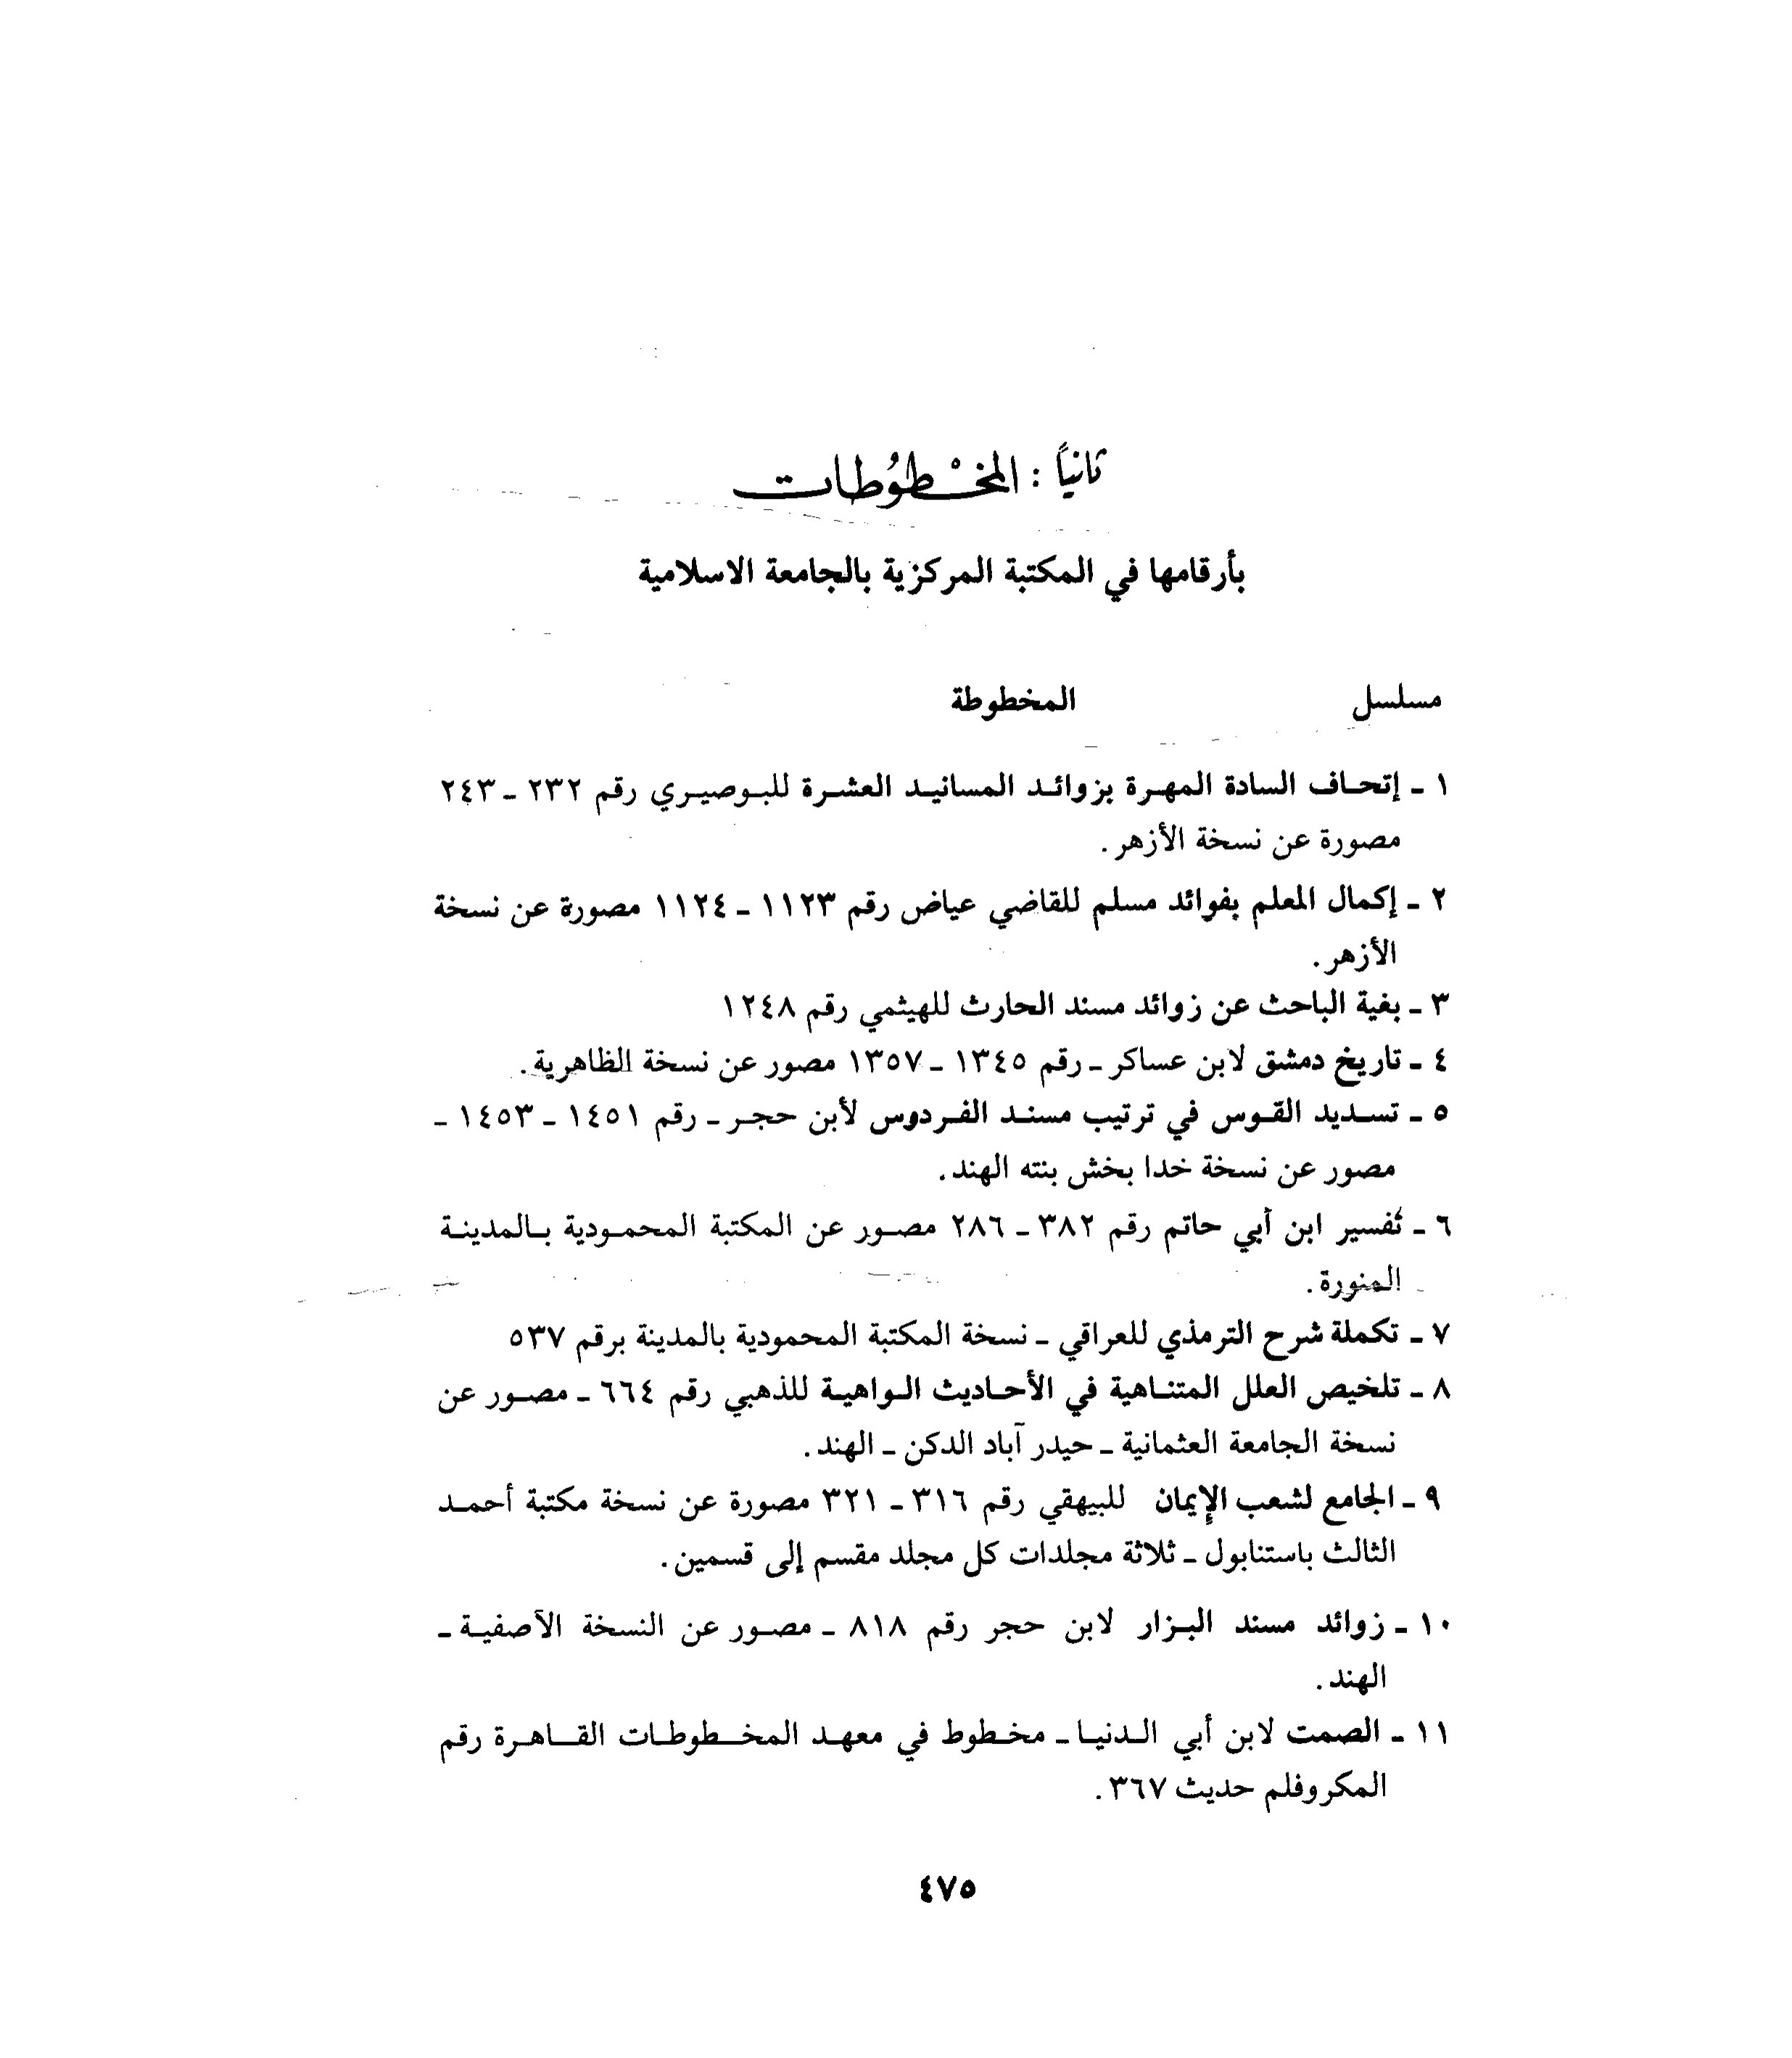 ثانياً : المخْطوُطات
بأرقامها في المكتبة المركزية بالجامعة الاسلامية
مسلسل المخطوطة
١ - إتحاف السادة المهرة بزوائد المسانيد العشرة للبوصيري رقم ٢٣٢ - ٢٤٣
مصورة عن نسخة الأزهر .
٢ - إكمال المعلم بفوائد مسلم للقاضي عياض رقم ١١٢٣ - ١١٢٤ مصورة عن نسخة
الأزهر .
٣ - بغية الباحث عن زوائد مسند الحارث للهيثمي رقم ١٢٤٨
٤ - تاريخ دمشق لابن عساكر - رقم ١٣٤٥ - ١٣٥٧ مصور عن نسخة الظاهرية .
٥ - تسديد القوس في ترتيب مسند الفردوس لأبن حجر - رقم ١٤٥١ - ١٤٥٣ -
مصور عن نسخة خدا بخش بنته الهند .
٦ - تفسير ابن أبي حاتم رقم ٣٨٢ - ٢٨٦ مصور عن المكتبة المحمودية بالمدينة
المنورة .
٧ - تكملة شرح الترمذي للعراقي - نسخة المكتبة المحمودية بالمدينة برقم ٥٣٧
٨ - تلخيص العلل المتناهية في الأحاديث الواهية للذهبي رقم ٦٦٤ - مصور عن
نسخة الجامعة العثمانية - حيدر آباد الدكن - الهند .
٩ - الجامع لشعب الإيمان للبيهقي رقم ٣١٦ - ٣٢١ مصورة عن نسخة مكتبة أحمد
الثالث باستنابول - ثلاثة مجلدات كل مجلد مقسم إلى قسمين .
١٠ - زوائد مسند البزار لابن حجر رقم ٨١٨ - مصور عن النسخة الآصفية -
الهند .
١١ - الصمت لابن أبي الدنيا - مخطوط في معهد المخطوطات القاهرة رقم
المكروفلم حديث ٣٦٧ .
٤٧٥